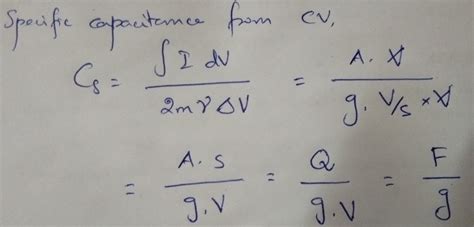 Specific capacitance from CV,
C_s = ∫ I dV / 2mν ΔV = A. V / g. V/s × V
= A. s / g. V = Q / g. V = F / g